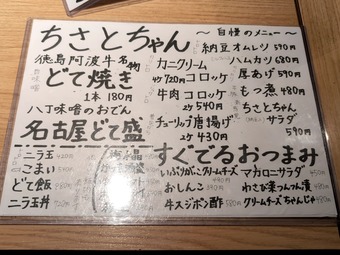 ちさとちゃん
徳島阿波牛名物
どて焼き
1本 180円
八丁味噌のおでん
名古屋どて盛
ニラ玉 420円
こまい
どて飯
ニラ玉丼
〜自慢のメニュー〜
納豆オムレツ 590円
カニクリーム
4ケ 720円 コロッケ
牛肉コロッケ
2ケ 540円
チューリップ唐揚げ
2ケ 430円
ハムカツ 680円
厚あげ 590円
もつ煮 480円
ちさとちゃん
サラダ
590円
すぐでるおつまみ
いぶりがっこクリームチーズ
おしんこ
牛スジポン酢 580円
マカロニサラダ 450円
わさび菜つんつん漬 380円
クリームチーズちゃんじゃ 480円